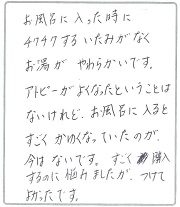 お風呂に入った時に
チクチクするいたみがなく
お湯がやわらかいです。
アトピーがよくなったということは
ないけれど、お風呂に入ると
すごくかゆくなっていたのが、
今はないです。すごく購入
するのに悩みましたが、つけて
よかったです。